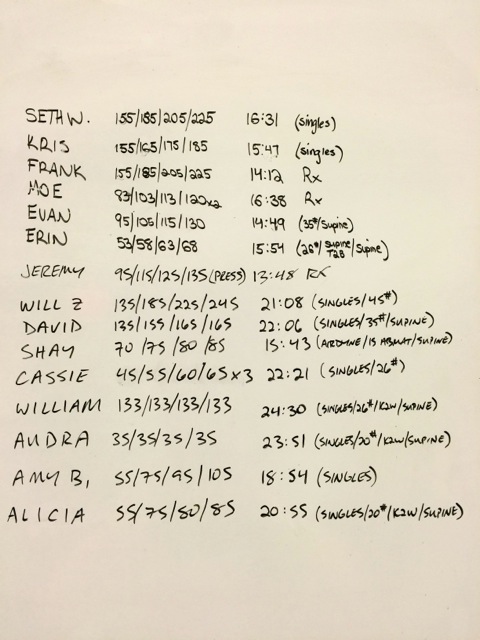 SETH W. 155/185/205/225 16:31 (singles)
KRIS 155/165/175/185 15:47 (singles)
FRANK 155/185/205/225 14:12 Rx
MOE 93/103/113/120x2 16:38 Rx
EVAN 95/105/115/130 14:49 (35#/Supine)
ERIN 53/58/63/68 15:54 (26#/Supine T2B/Supine)
JEREMY 95/115/125/135 (PRESS) 13:48 RX
WILL Z 135/185/225/245 21:08 (SINGLES/45#)
DAVID 135/155/165/165 22:06 (SINGLES/35#/SUPINE)
SHAY 70/75/80/85 15:43 (AIRDYNE/15 ABMAT/SUPINE)
CASSIE 45/55/60/65x3 22:21 (SINGLES/26#)
WILLIAM 133/133/133/133 24:30 (SINGLES/26#/K2W/SUPINE)
AUDRA 35/35/35/35 23:51 (SINGLES/20#/K2W/SUPINE)
AMY B, 55/75/95/105 18:54 (SINGLES)
ALICIA 55/75/80/85 20:55 (SINGLES/20#/K2W/SUPINE)